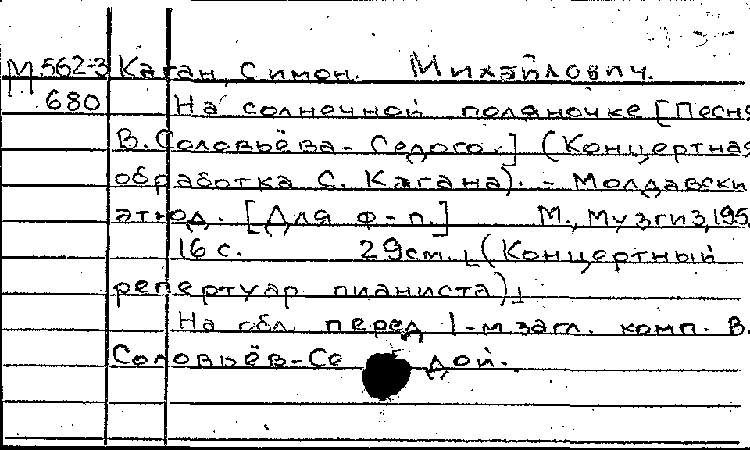 М 562-3 Каган, Симон. Михайлович.
680 На солнечной поляночке [Песня
В. Соловьёва-Седого.] (Концертная
обработка С. Кагана). - Молдавски
этюд. [Для ф-п.] М., Музгиз, 195
16 с. 29 см. (Концертный
репертуар пианиста)
На обл. перед 1-м загл. комп. В.
Соловьёв-Седой.